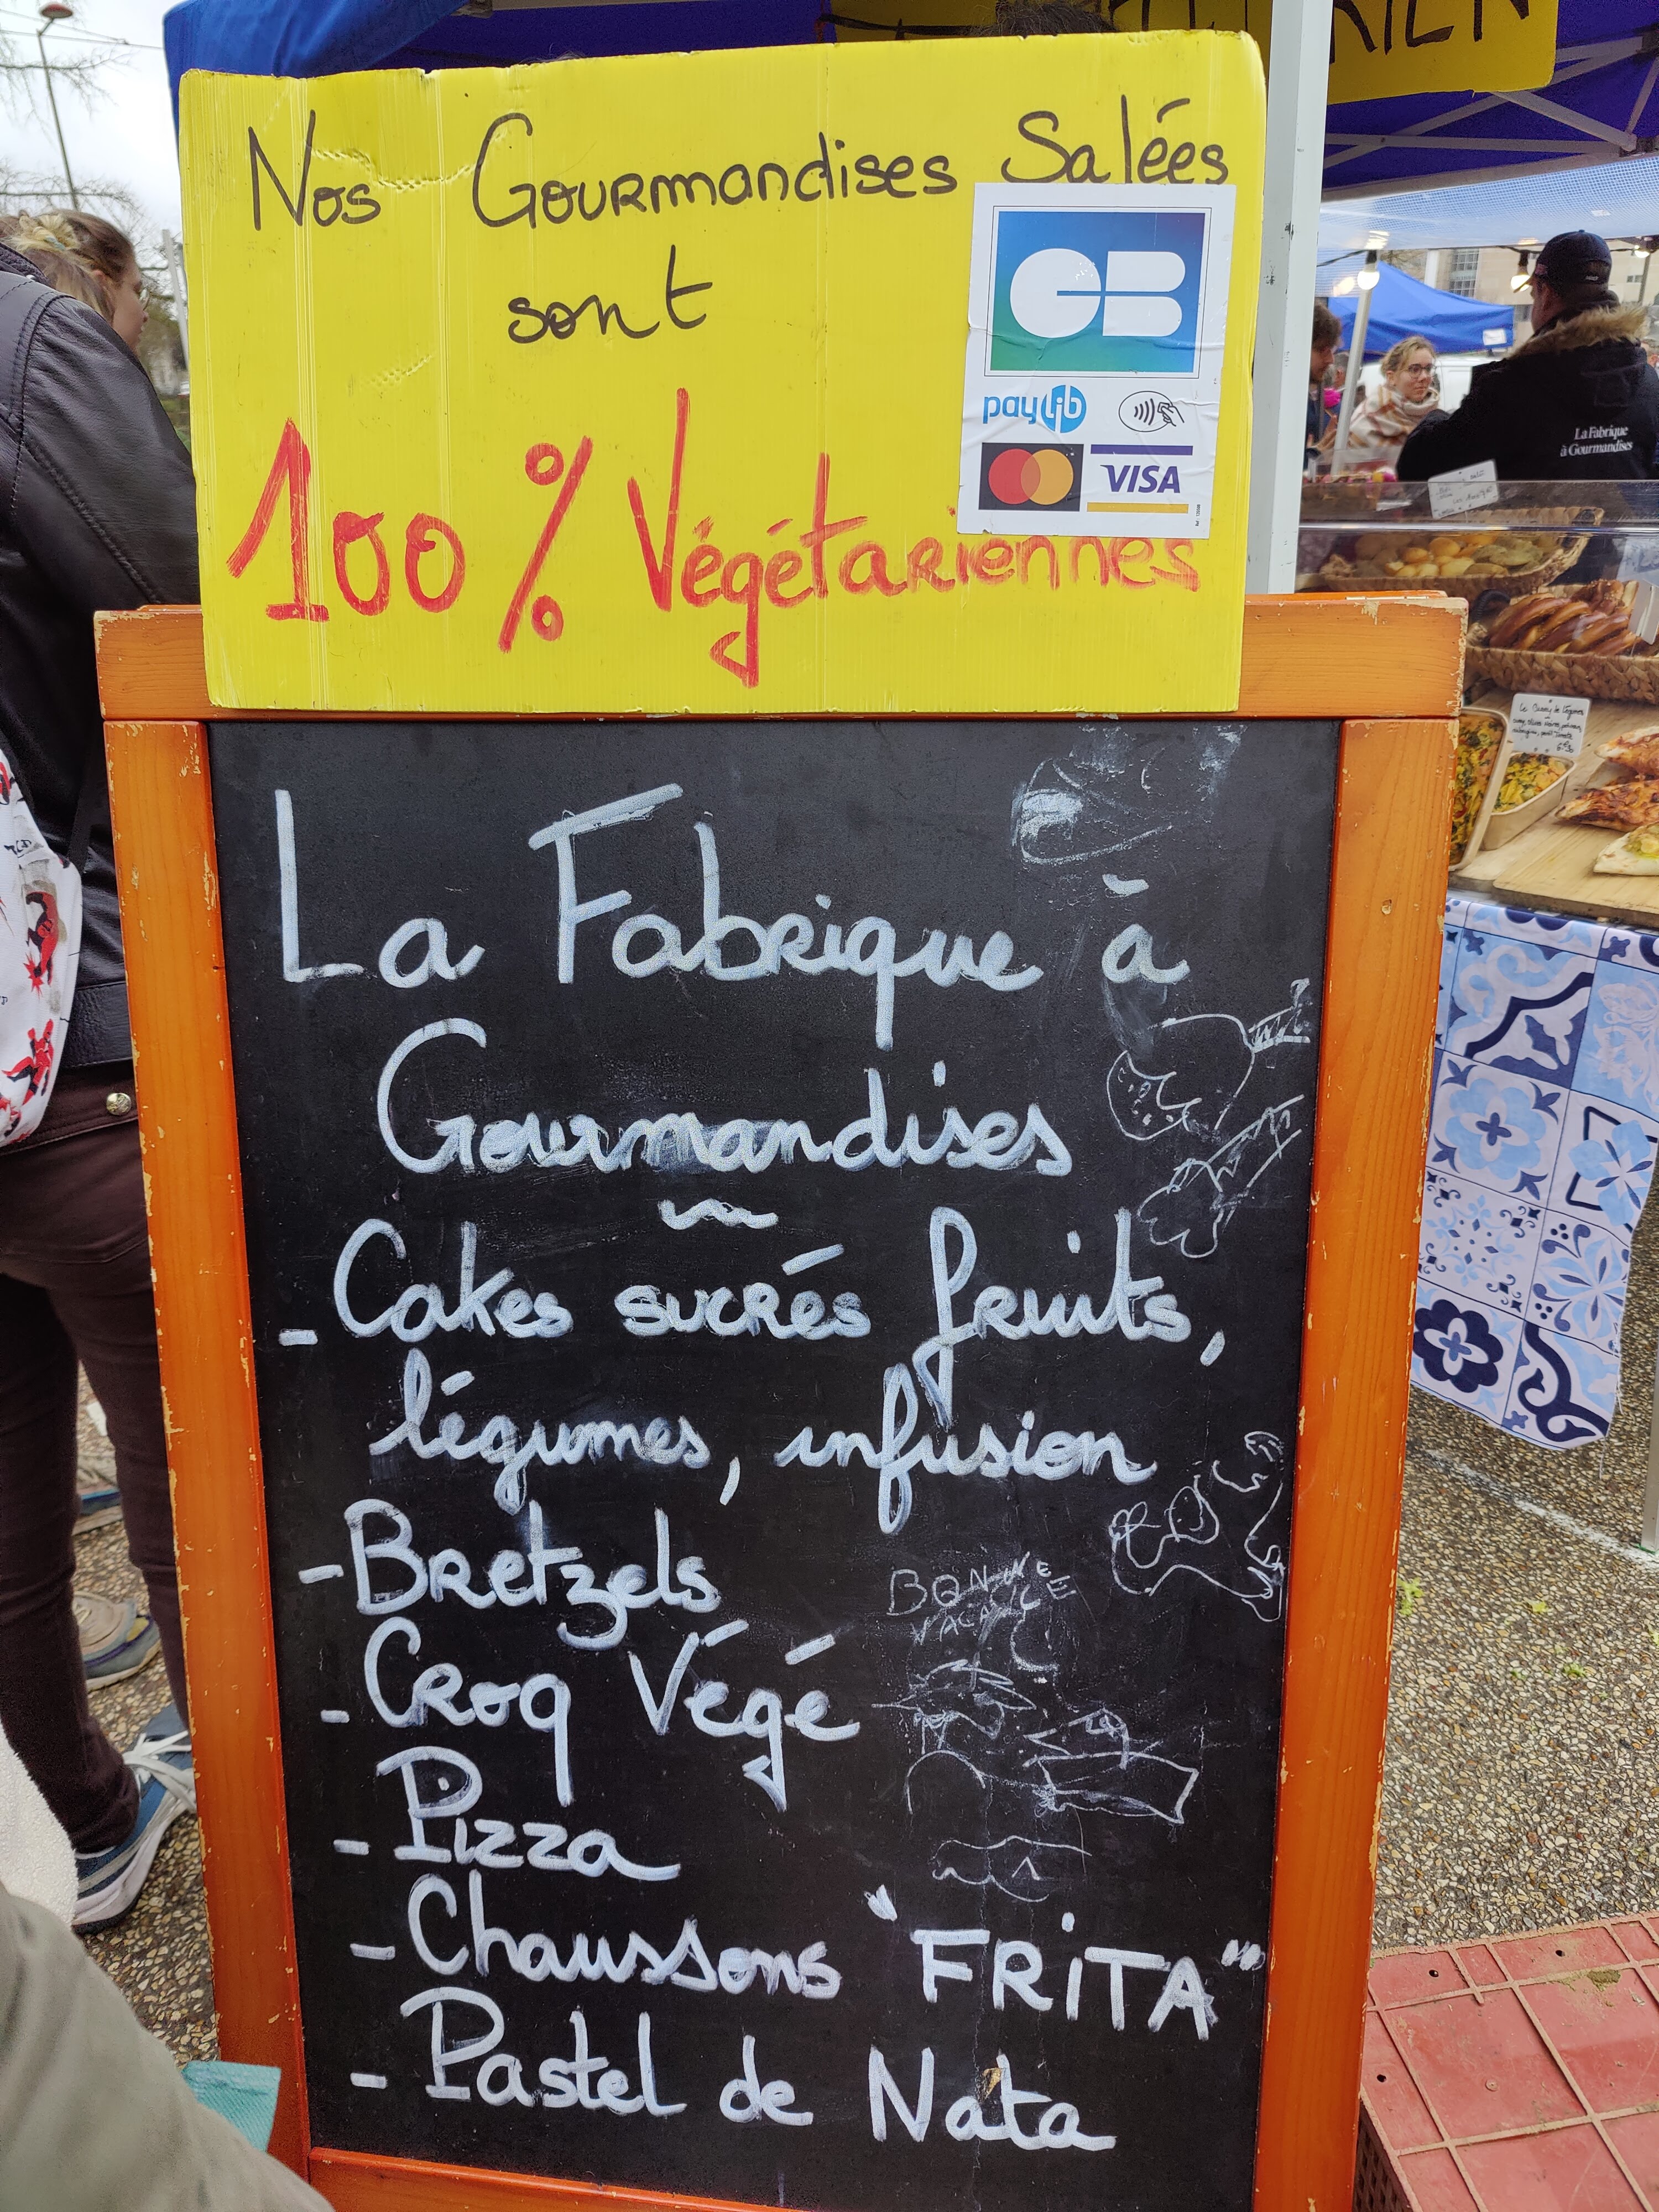 Nos Gourmandises Salées
sont
100 % Végétariennes
CB
paylib
VISA
La Fabrique
à Gourmandises
La Fabrique à
Gourmandises
- Cakes sucrés fruits,
légumes, infusion
- Bretzels
BONNE
VACANCE
- Croq Végé
- Pizza
- Chaussons "FRiTA"
- Pastel de Nata